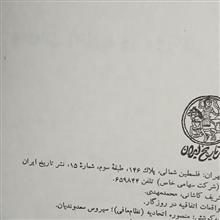 تاریخ ایران
هران: فلسطین شمالی، پلاک ۱۴۶، طبقهٔ سوم، شمارهٔ ۱۵، نشر تاریخ ایران
(شرکت سهامی خاص) تلفن ۶۵۹۸۴۴
یف کاشانی، محمدمهدی.
واقعات اتفاقیه در روزگار.
منصوره اتحادیه (نظام‌مافی)؛ سیروس سعدوندیان.